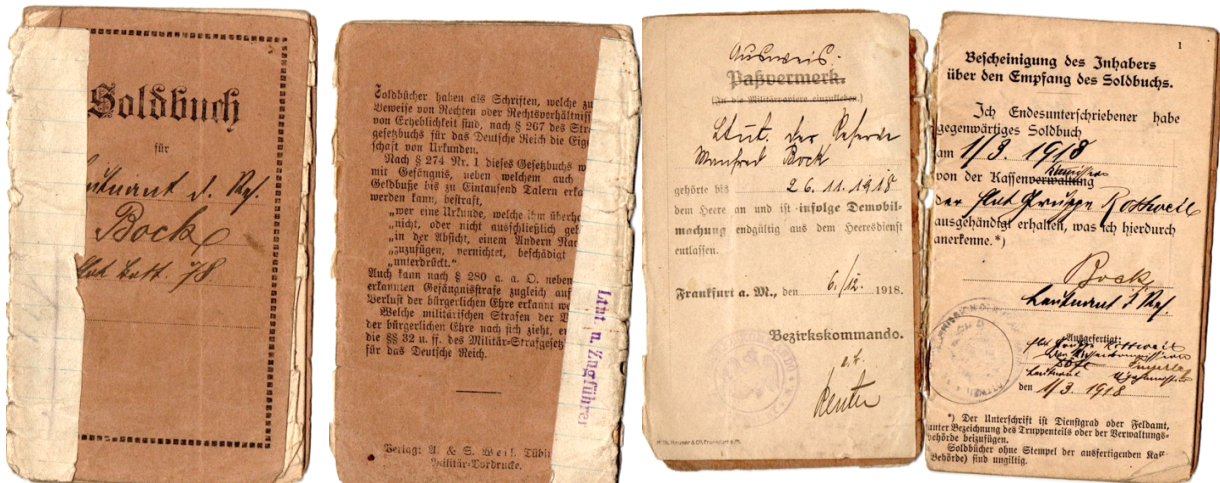 Soldbuch
für
Leutnant d. Res.
Bock
Flak Batt. 78
Soldbücher haben als Schriften, welche zu
Beweise von Rechten oder Rechtsverhältniss
von Erheblichkeit sind, nach § 267 des Stra
gesetzbuchs für das Deutsche Reich die Eig
schaft von Urkunden.
Nach § 274 Nr. 1 dieses Gesetzbuchs w
mit Gefängnis, neben welchem auch
Geldbuße bis zu Eintausend Talern erka
werden kann, bestraft,
„wer eine Urkunde, welche ihm überha
„nicht, oder nicht ausschließlich geb
„in der Absicht, einem Andern Nac
„zuzufügen, vernichtet, beschädigt
„unterdrückt."
Auch kann nach § 280 a. a. O. neben
erkannten Gefängnisstrafe zugleich auf
Verlust der bürgerlichen Ehre erkannt w
Welche militärischen Strafen der V
der bürgerlichen Ehre nach sich zieht, er
die §§ 32 u. ff. des Militär-Strafgesetz
für das Deutsche Reich.
Verlag: A. & S. Weil, Tübi
Militär-Vordrucke.
Ltnt u. Zugführer
Ausweis.
Paßvermerk.
(In die Militärpapiere einzukleben.)
Ltnt. der Reserve
Manfred Bock
gehörte bis 26.11.1918
dem Heere an und ist infolge Demobil-
machung endgültig aus dem Heeresdienst
entlassen.
Frankfurt a. M., den 6./12. 1918.
Bezirkskommando.
1
Bescheinigung des Inhabers
über den Empfang des Soldbuchs.
Ich Endesunterschriebener habe
gegenwärtiges Soldbuch
am 1/3. 1918
von der Kassenverwaltung
der Flak Gruppe Rottweil
ausgehändigt erhalten, was ich hierdurch
anerkenne.*)
Bock
Leutnant d. Res.
Ausgefertigt:
Flak Gruppe Rottweil
Leutnant
den 1/3. 1918
*) Der Unterschrift ist Dienstgrad oder Feldamt,
unter Bezeichnung des Truppenteils oder der Verwaltungs-
behörde beizufügen.
Soldbücher ohne Stempel der ausfertigenden Kass
Behörde) sind ungiltig.